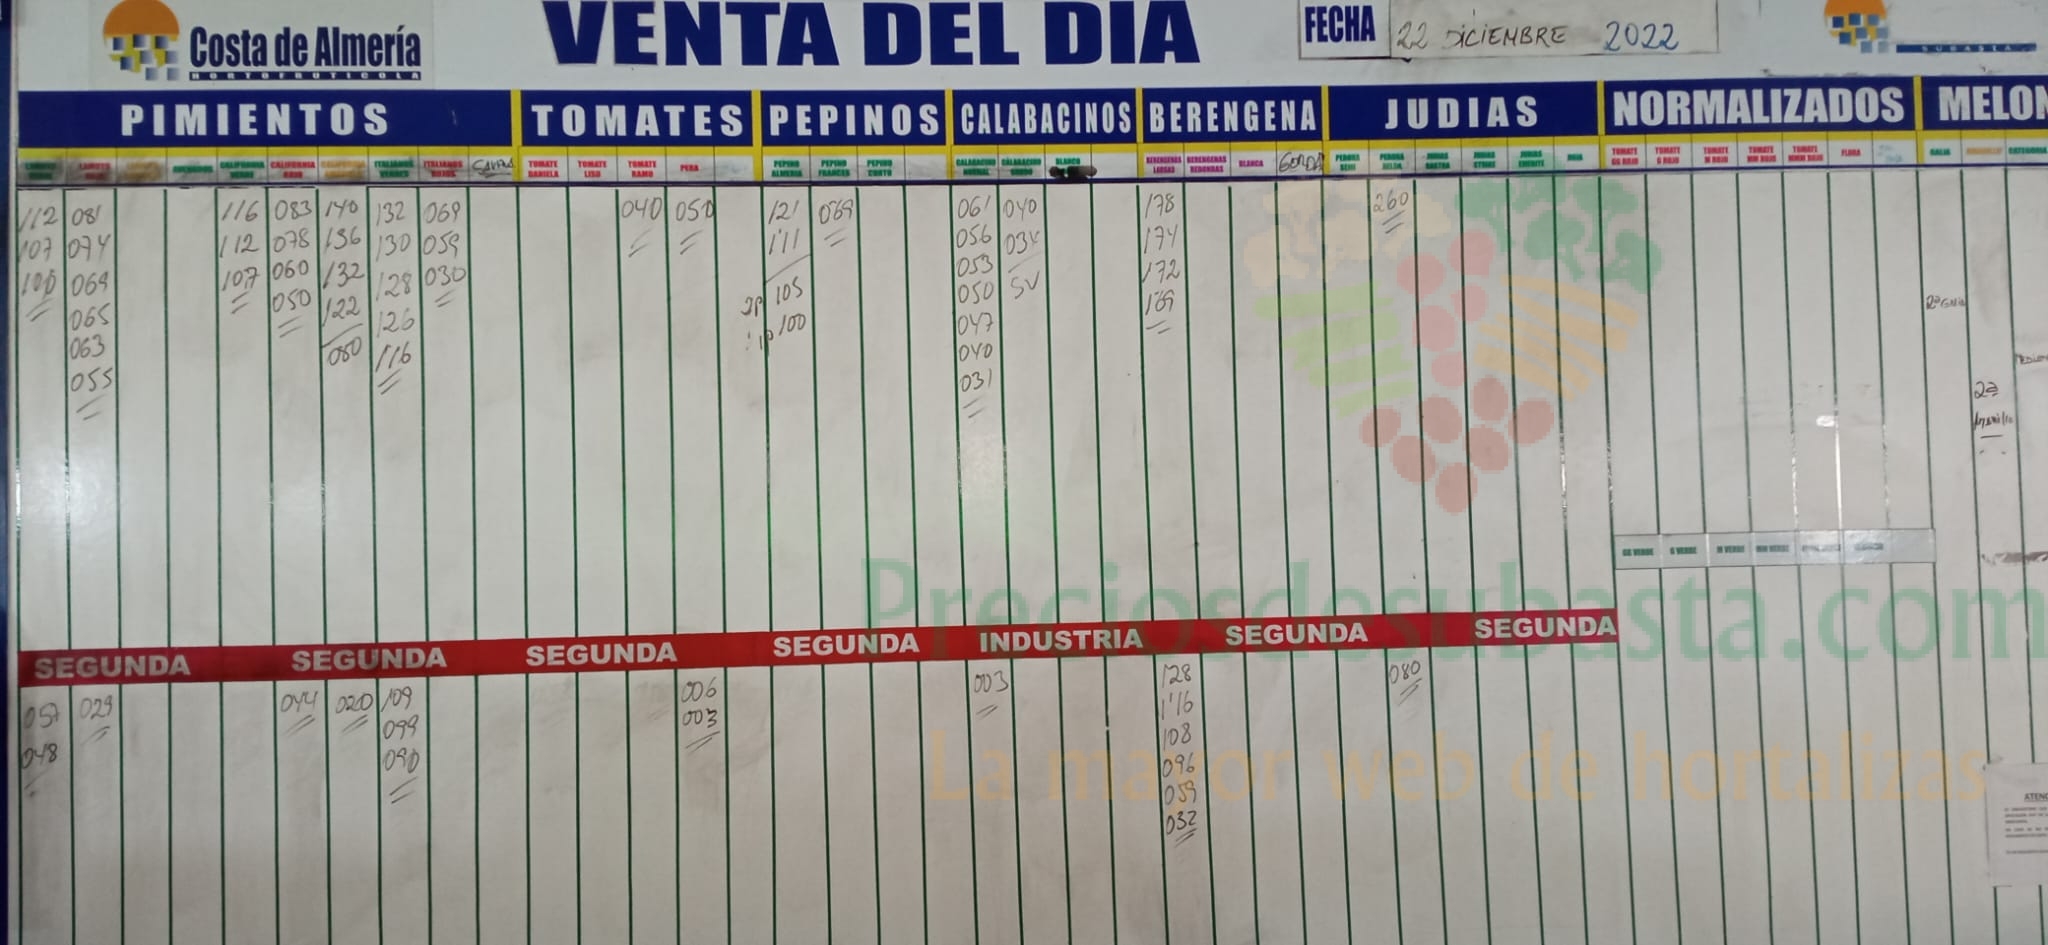 Costa de Almería
HORTOFRUTICOLA
VENTA DEL DIA
FECHA 22 DICIEMBRE 2022
SUBASTA
PIMIENTOS TOMATES PEPINOS CALABACINOS BERENGENA JUDIAS NORMALIZADOS MELON
CALIFORNIA VERDE CALIFORNIA ROJO ITALIANOS VERDES ITALIANOS ROJOS TOMATE DANIELA TOMATE LISO TOMATE RAMO PERA PEPINO ALMERIA PEPINO FRANCES PEPINO CORTO CALABACINO NORMAL CALABACINO GORDO BLANCO BERENGENAS LARGAS BERENGENAS REDONDAS BLANCA GORDA PERONA SEMI PERONA HELDA JUDIAS RASTRA JUDIAS STRIKE JUDIAS EMERITE ROJA TOMATE GG ROJO TOMATE G ROJO TOMATE M ROJO TOMATE MM ROJO TOMATE MMM ROJO FLORA GALIA AMARILLO CATEGORIA
112 081 116 083 140 132 069 040 050 121 069 061 040 178 260
107 074 112 078 136 130 059 111 056 034 174
100 069 107 060 132 128 030 2P 105 053 SV 172
065 050 122 126 1P 100 050 169
063 080 116 047
055 040
031
2ª Galia
2ª
Amarillo
GG VERDE G VERDE M VERDE MM VERDE
SEGUNDA SEGUNDA SEGUNDA SEGUNDA INDUSTRIA SEGUNDA SEGUNDA
057 029 044 020 109 006 003 128 080
048 099 003 116
090 108
096
059
032
Preciosdesubasta.com
La mayor web de hortalizas